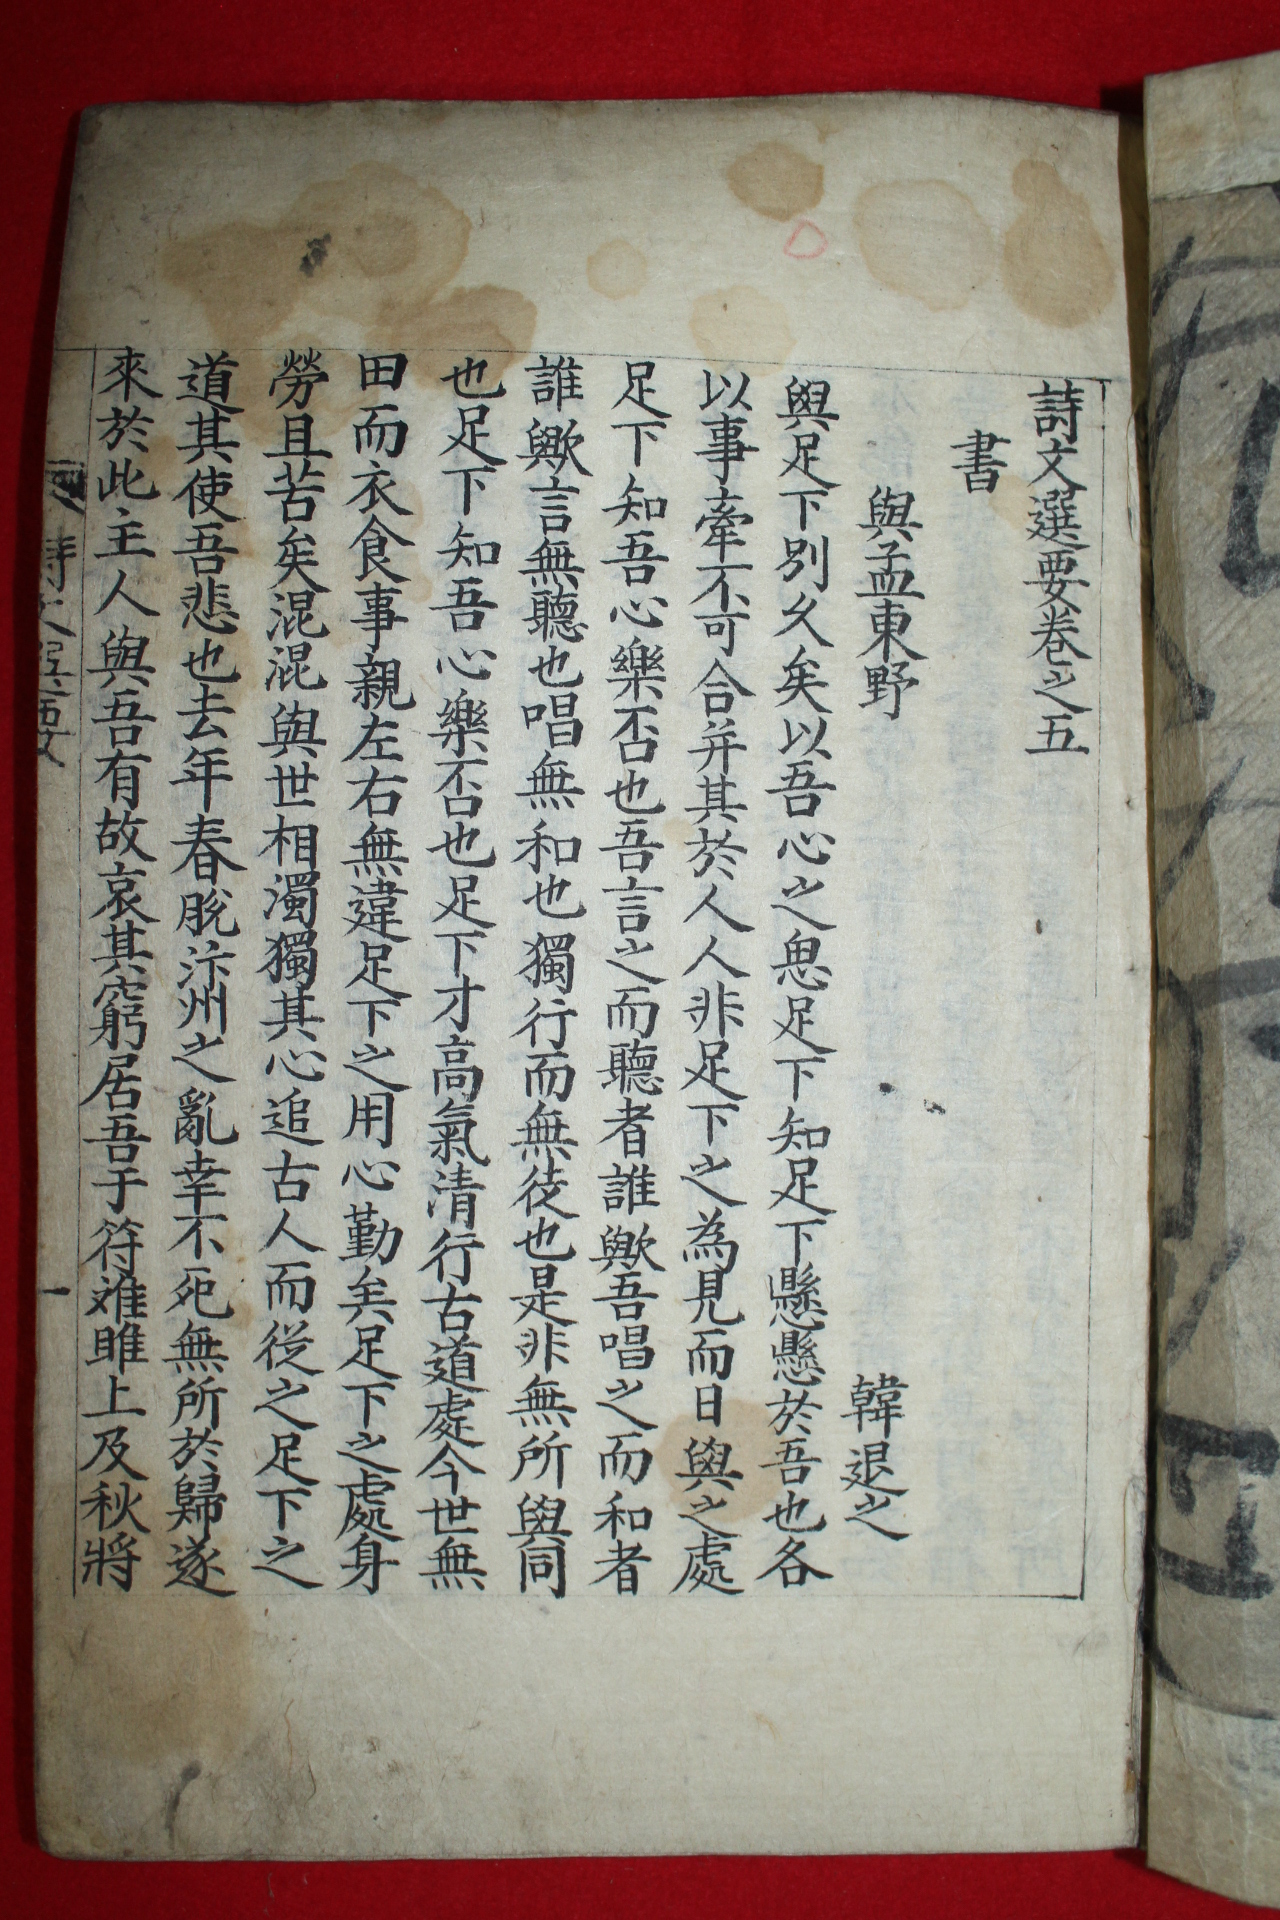 詩文選要卷之五
書
與孟東野
韓退之
與足下別久矣以吾心之思足下知足下懸懸於吾也各
以事牽不可合并其於人人非足下之為見而日與之處
足下知吾心樂否也吾言之而聽者誰歟吾唱之而和者
誰歟言無聽也唱無和也獨行而無徒也是非無所與同
也足下知吾心樂否也足下才高氣清行古道處今世無
田而衣食事親左右無違足下之用心勤矣足下之處身
勞且苦矣混混與世相濁獨其心追古人而從之足下之
道其使吾悲也去年春脫汴州之亂幸不死無所於歸遂
來於此主人與吾有故哀其窮居吾于符離睢上及秋將
詩文選要
一